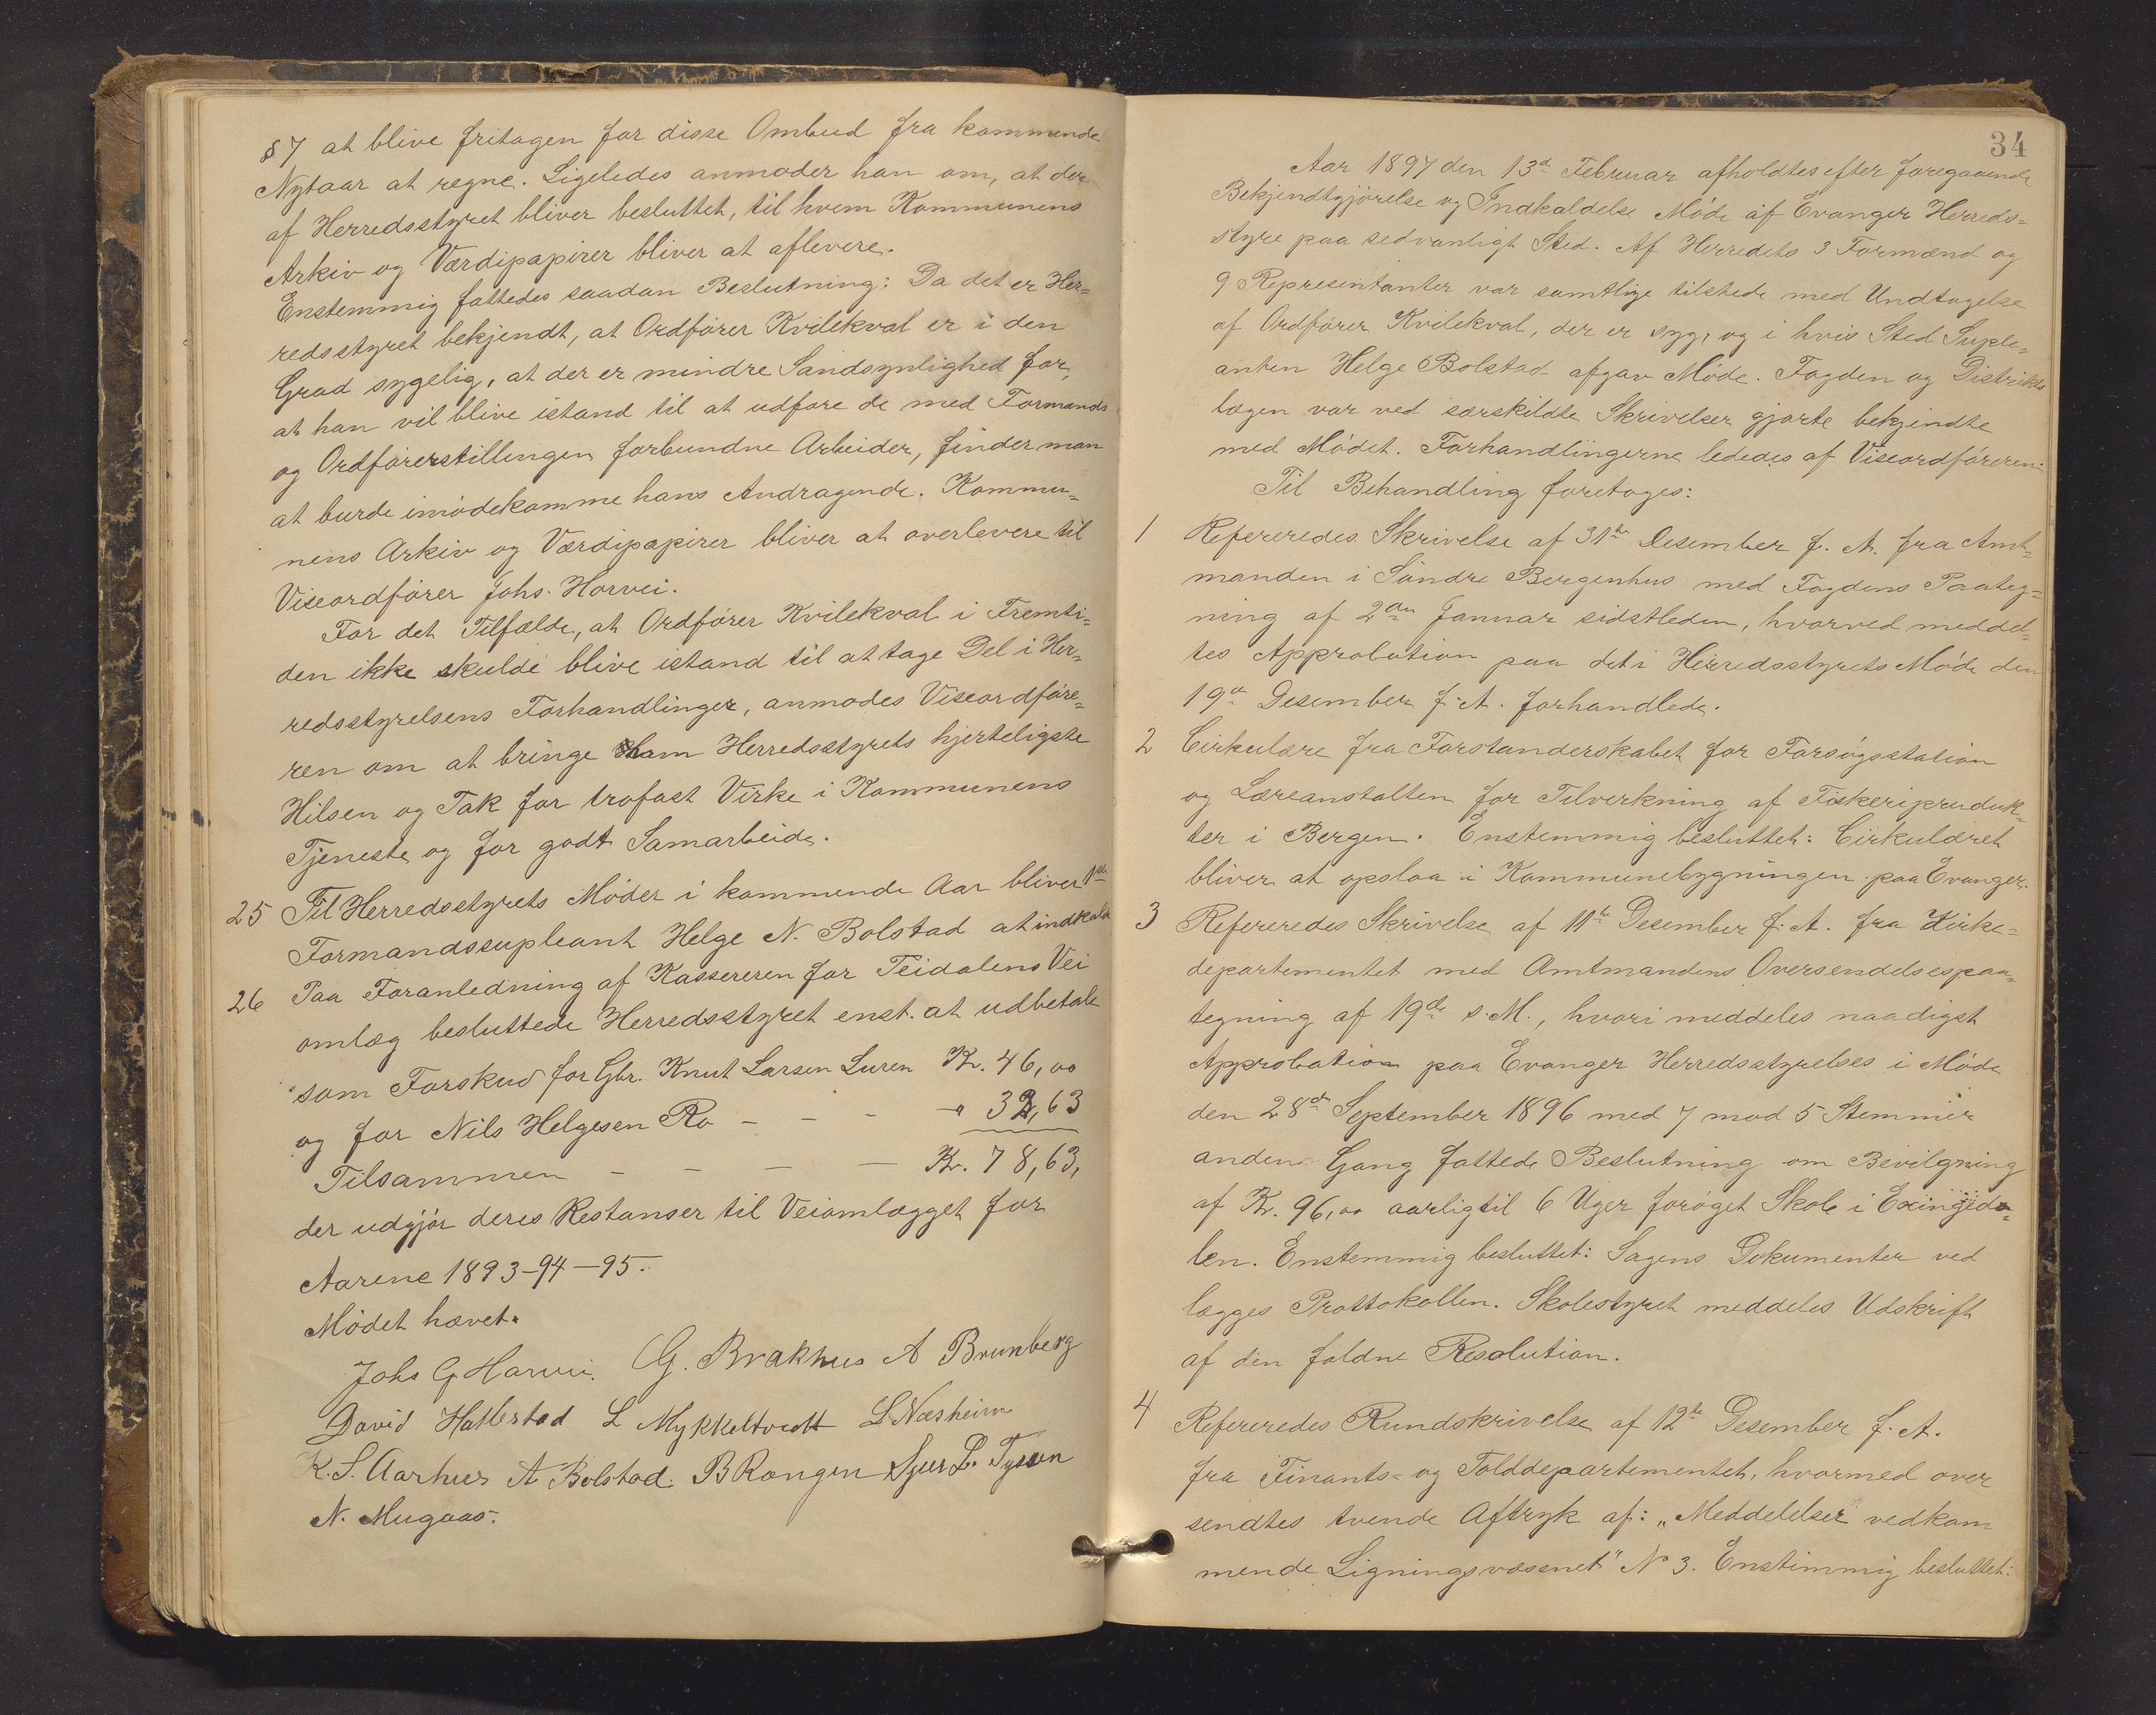 §7 at blive fritagen for disse Ombud fra kommende
Nytaar at regne. Ligeledes anmoder han om, at der
af Herredsstyret bliver besluttet, til hvem Kommunens
Arkiv og Værdipapirer bliver at aflevere.
Enstemmig fattedes saadan Beslutning: Da det er Her-
redsstyret bekjendt, at Ordfører Kvilekval er i den
Grad sygelig, at der er mindre Sandsynlighed for,
at han vil blive istand til at udføre de med Formands
og Ordførerstillingen forbundne Arbeider, finder man
at burde imødekomme hans Andragende. Kommu-
nens Arkiv og Værdipapirer bliver at overlevere til
Viseordfører Johs. Horvei.
For det Tilfælde, at Ordfører Kvilekval i Fremti-
den ikke skulde blive istand til at tage Del i Her-
redsstyrelsens Forhandlinger, anmodes Viseordføre-
ren om at bringe ham Herredsstyrets hjerteligste
Hilsen og Tak for trofast Virke i Kommunens
Tjeneste og for godt Samarbeide.
25 Til Herredsstyrets Møder i kommende Aar bliver 1ste
Formandssupleant Helge N. Bolstad at indkalde
26 Paa Foranledning af Kassereren for Teidalens Vei
omlæg besluttede Herredsstyret enst. at udbetale
som Forskud for Gbr. Knut Larsen Luren Kr. 46,00
og for Nils Helgesen Ro - - - " 32,63
Tilsammen - - - - Kr. 78,63,
der udgjør deres Restanser til Veiomlægget for
Aarene 1893-94-95.
Mødet hævet.
Johs G Horvei. G. Brakhus A Brunberg
David Hatlestad L Mykkeltvedt L Næsheim
K. S. Aarhus A Bolstad. B Rongen Sjur L. Tyssen
N. Mugaas.
34
Aar 1897 den 13de Februar afholdtes efter foregaaende
Bekjendtgjørelse og Indkaldelse Møde af Evanger Herreds-
styre paa sedvanligt Sted. Af Herredets 3 Formænd og
9 Representanter var samtlige tilstede med Undtagelse
af Ordfører Kvilekval, der er syg, og i hvis Sted Suple-
anten Helge Bolstad afgav Møde. Fogden og Distrikts
lægen var ved særskildte Skrivelser gjorte bekjendte
med Mødet. Forhandlingerne lededes af Viseordføreren.
Til Behandling foretoges:
1 Refereredes Skrivelse af 31te Desember f. A. fra Amt-
manden i Søndre Bergenhus med Fogdens Paateg-
ning af 2den Januar sidstleden, hvorved meddel-
tes Approbation paa det i Herredsstyrets Møde den
19de Desember f. A. forhandlede.
2 Cirkulære fra Forstanderskabet for Forsøgsstation
og Læreanstalten for Tilverkning af Fiskeriproduk-
ter i Bergen. Enstemmig besluttet: Cirkulæret
bliver at opslaa i Kommunebygningen paa Evanger.
3 Refereredes Skrivelse af 11te Desember f. A. fra Kirke-
departementet med Amtmandens Oversendelsespaa-
tegning af 19de s. M., hvori meddeles naadigst
Approbation paa Evanger Herredsstyrelses i Møde
den 28de September 1896 med 7 mod 5 Stemmer
anden Gang fattede Beslutning om Bevilgning
af Kr. 96,00 aarlig til 6 Uger forøget Skole i Exingeda-
len. Enstemmig besluttet: Sagens Dokumenter ved
lægges Prottokollen. Skolestyret meddeles Udskrift
af den faldne Resolution.
4 Refereredes Rundskrivelse af 12te Desember f. A.
fra Finants- og Tolddepartementet, hvormed over
sendtes tvende Aftryk af: „Meddelelser vedkom
mende Ligningsvæsnet" No 3. Enstimmig besluttet: